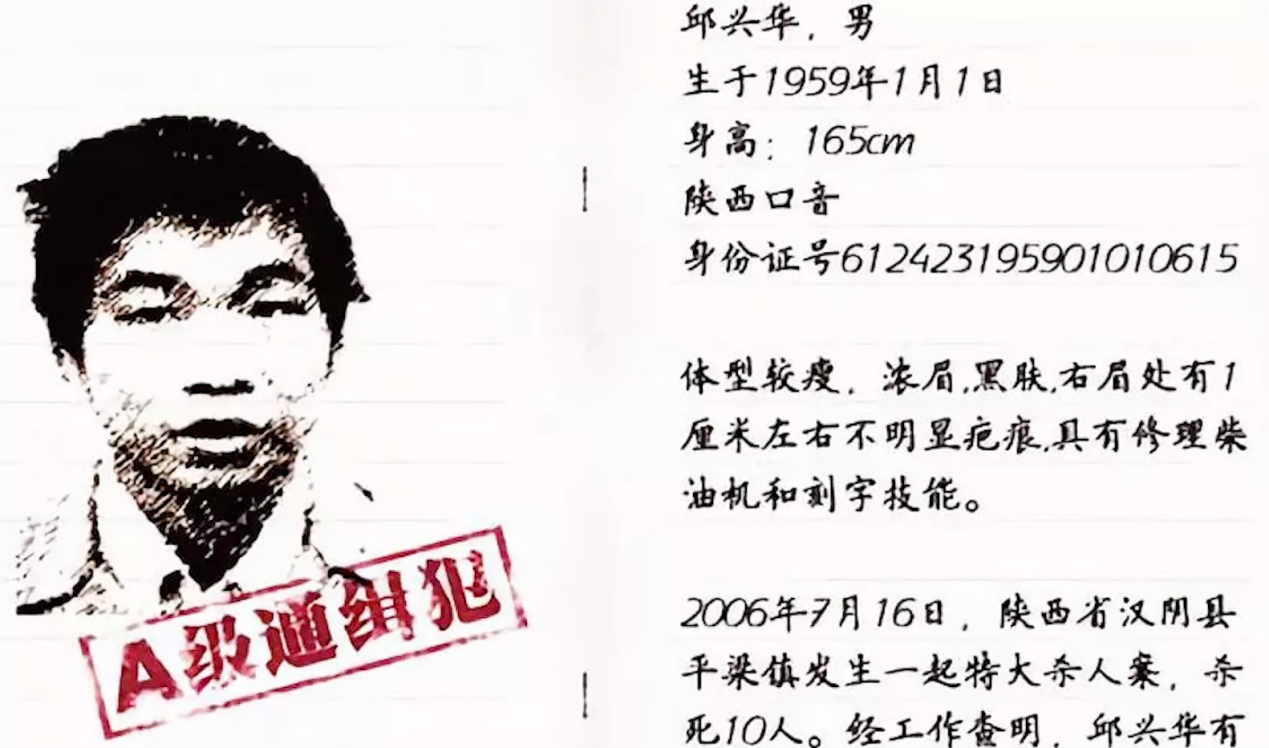 邱兴华，男
生于1959年1月1日
身高：165cm
陕西口音
身份证号612423195901010615
体型较瘦，浓眉,黑肤,右眉处有1
厘米左右不明显疤痕,具有修理柴
油机和刻字技能。
A级通缉犯
2006年7月16日，陕西省汉阴县
平梁镇发生一起特大杀人案，杀
死10人。经工作查明，邱兴华有